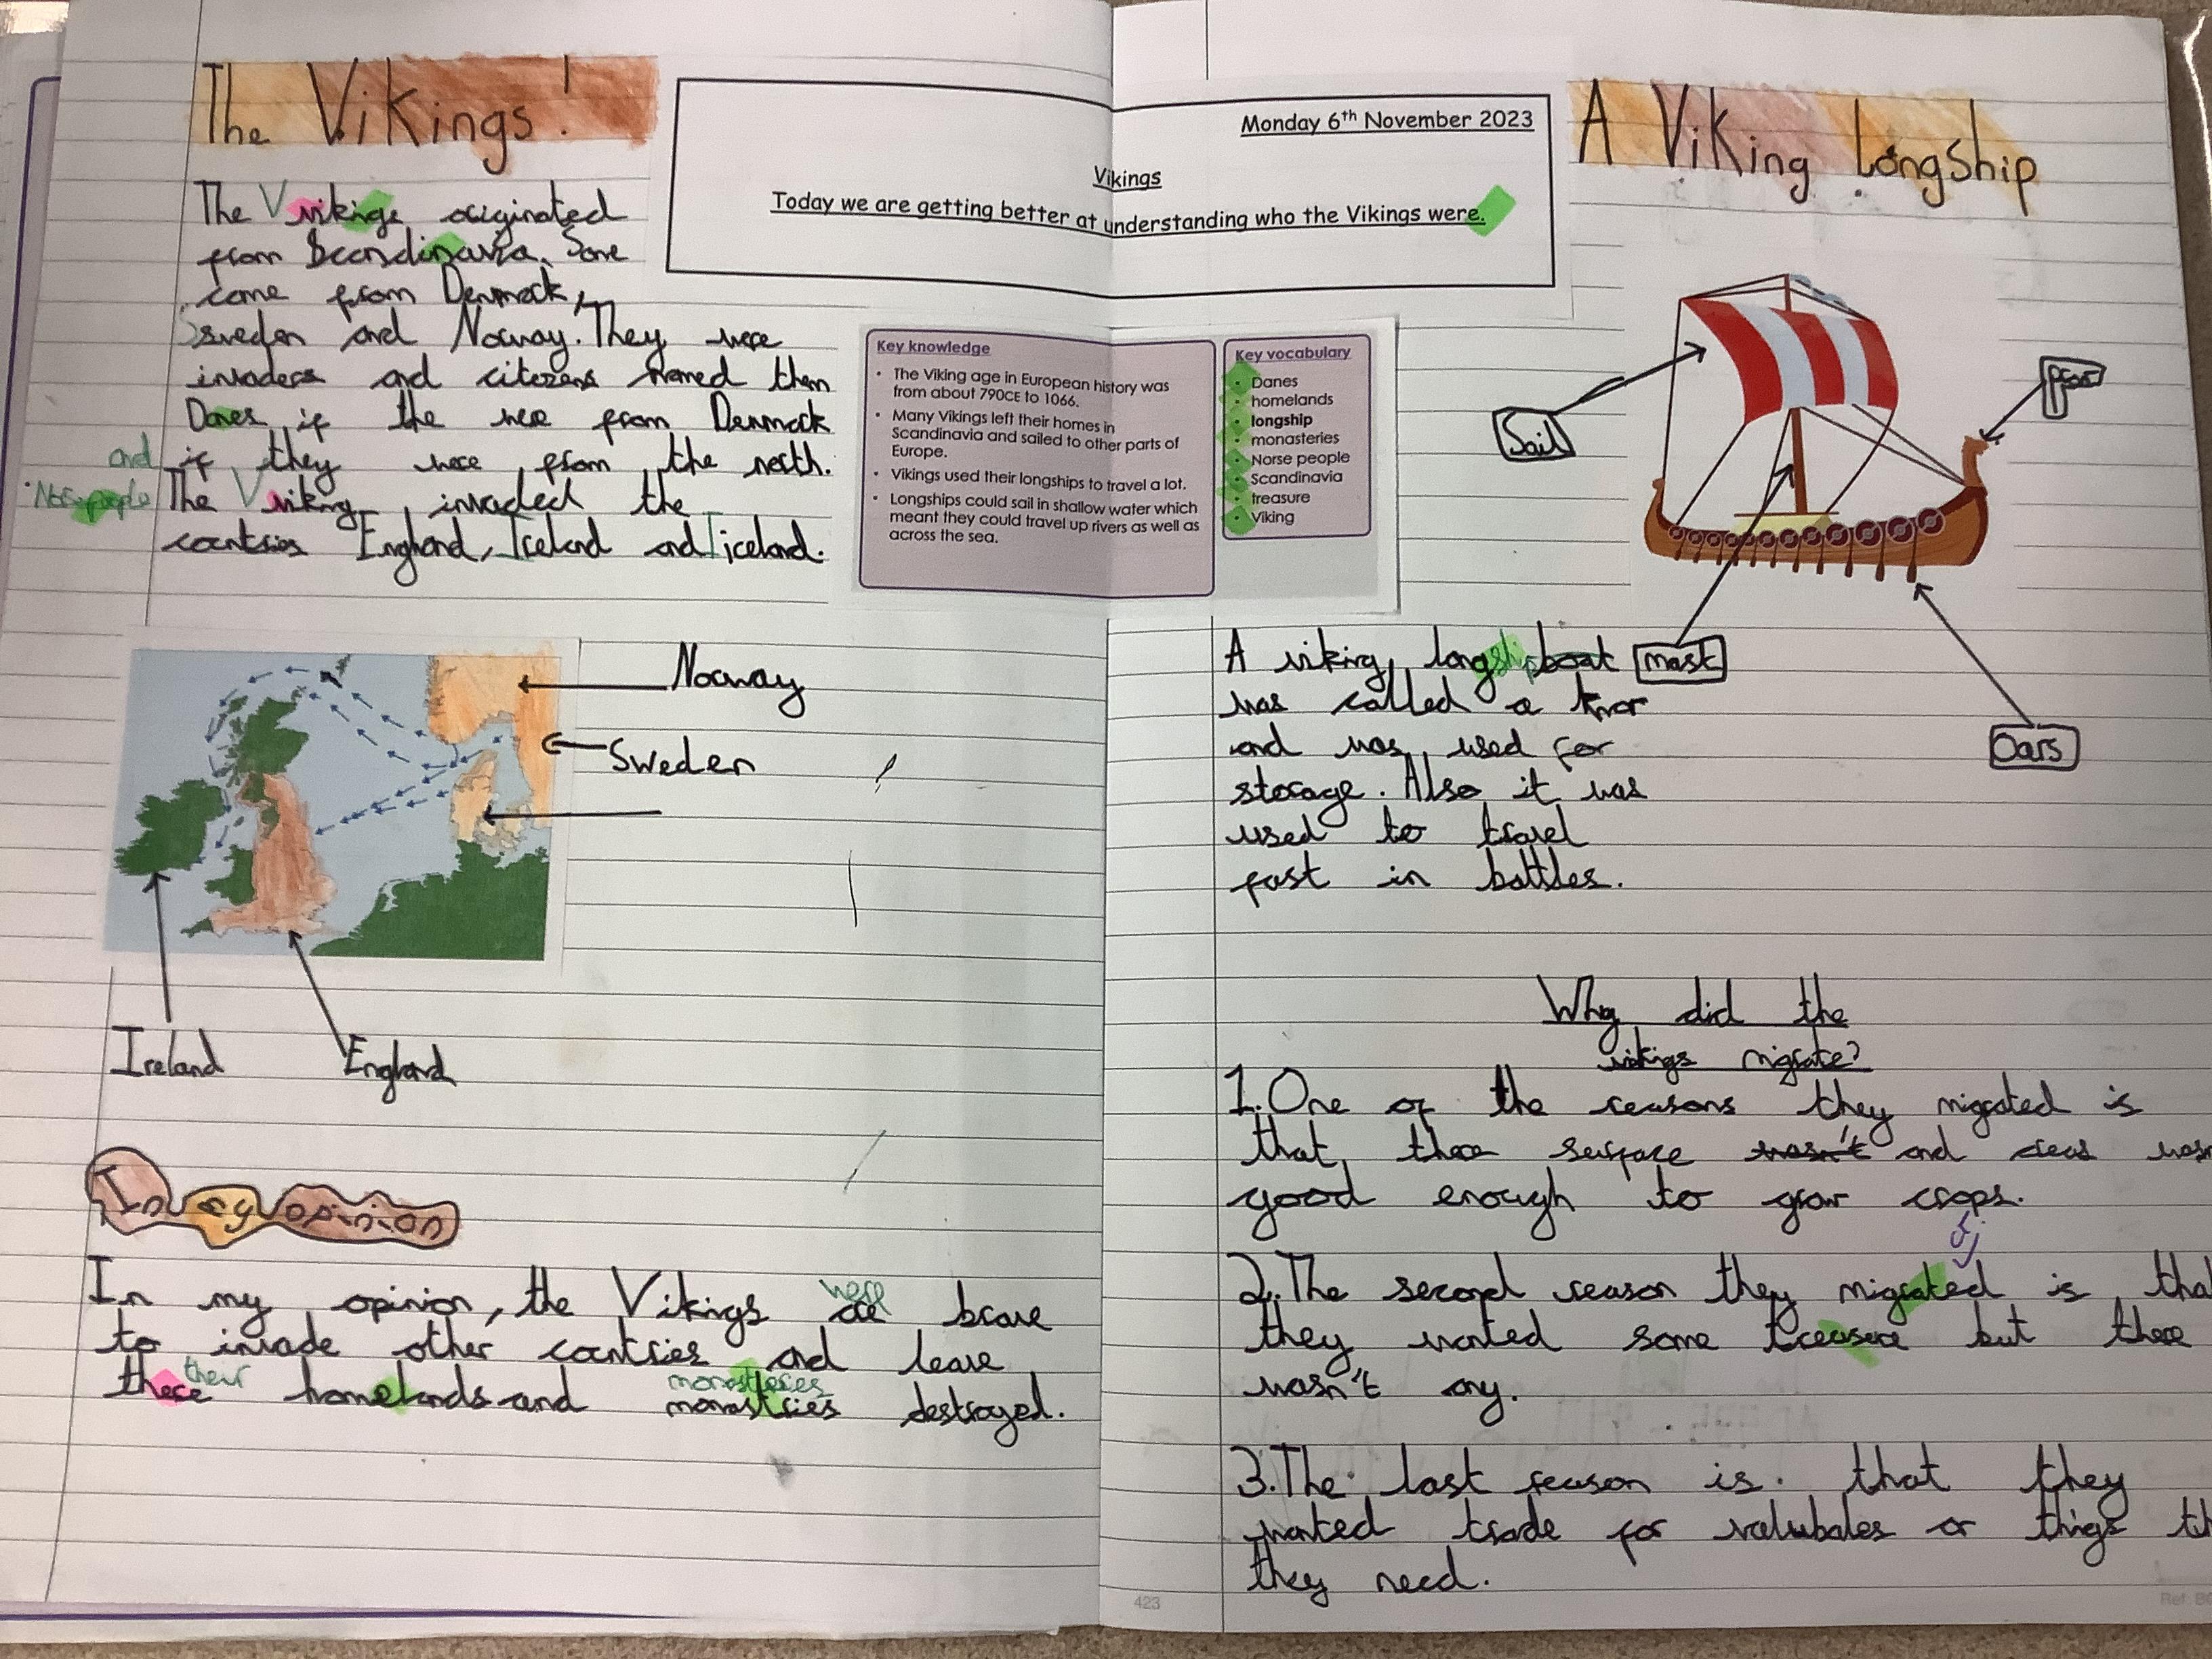 The Vikings!
The Vvikings originated
from Scandinavia. Some
come from Denmack,
Ssweden and Norway. They were
invaders and citezens named them
Danes if the were from Denmack
and if they were from the north.
Norse people The Vviking invaded the
countries England, Iceland and Iiceland.
Norway
Sweden
Ireland
England
In my opinion
In my opinion, the Vikings are were brave
to invade other countries and leave
there their homelands and monastries monasteries destroyed.
Monday 6th November 2023
Vikings
Today we are getting better at understanding who the Vikings were.
Key knowledge
• The Viking age in European history was
from about 790CE to 1066.
• Many Vikings left their homes in
Scandinavia and sailed to other parts of
Europe.
• Vikings used their longships to travel a lot.
• Longships could sail in shallow water which
meant they could travel up rivers as well as
across the sea.
Key vocabulary
• Danes
• homelands
• longship
• monasteries
• Norse people
• Scandinavia
• treasure
• Viking
A Viking Longship
Sail
mast
Oars
A viking longshipboat
was called a knor
and was used for
storage. Also it was
used to travel
fast in battles.
Why did the
vikigs migrate?
1. One of the reasons they migrated is
that there surface wasn't and areas
good enough to grow crops.
2. The second reason they migrated is
they wanted some treasure but there
wasn't any.
3. The last reason is that they
wanted trade for valubales or things
they need.
423